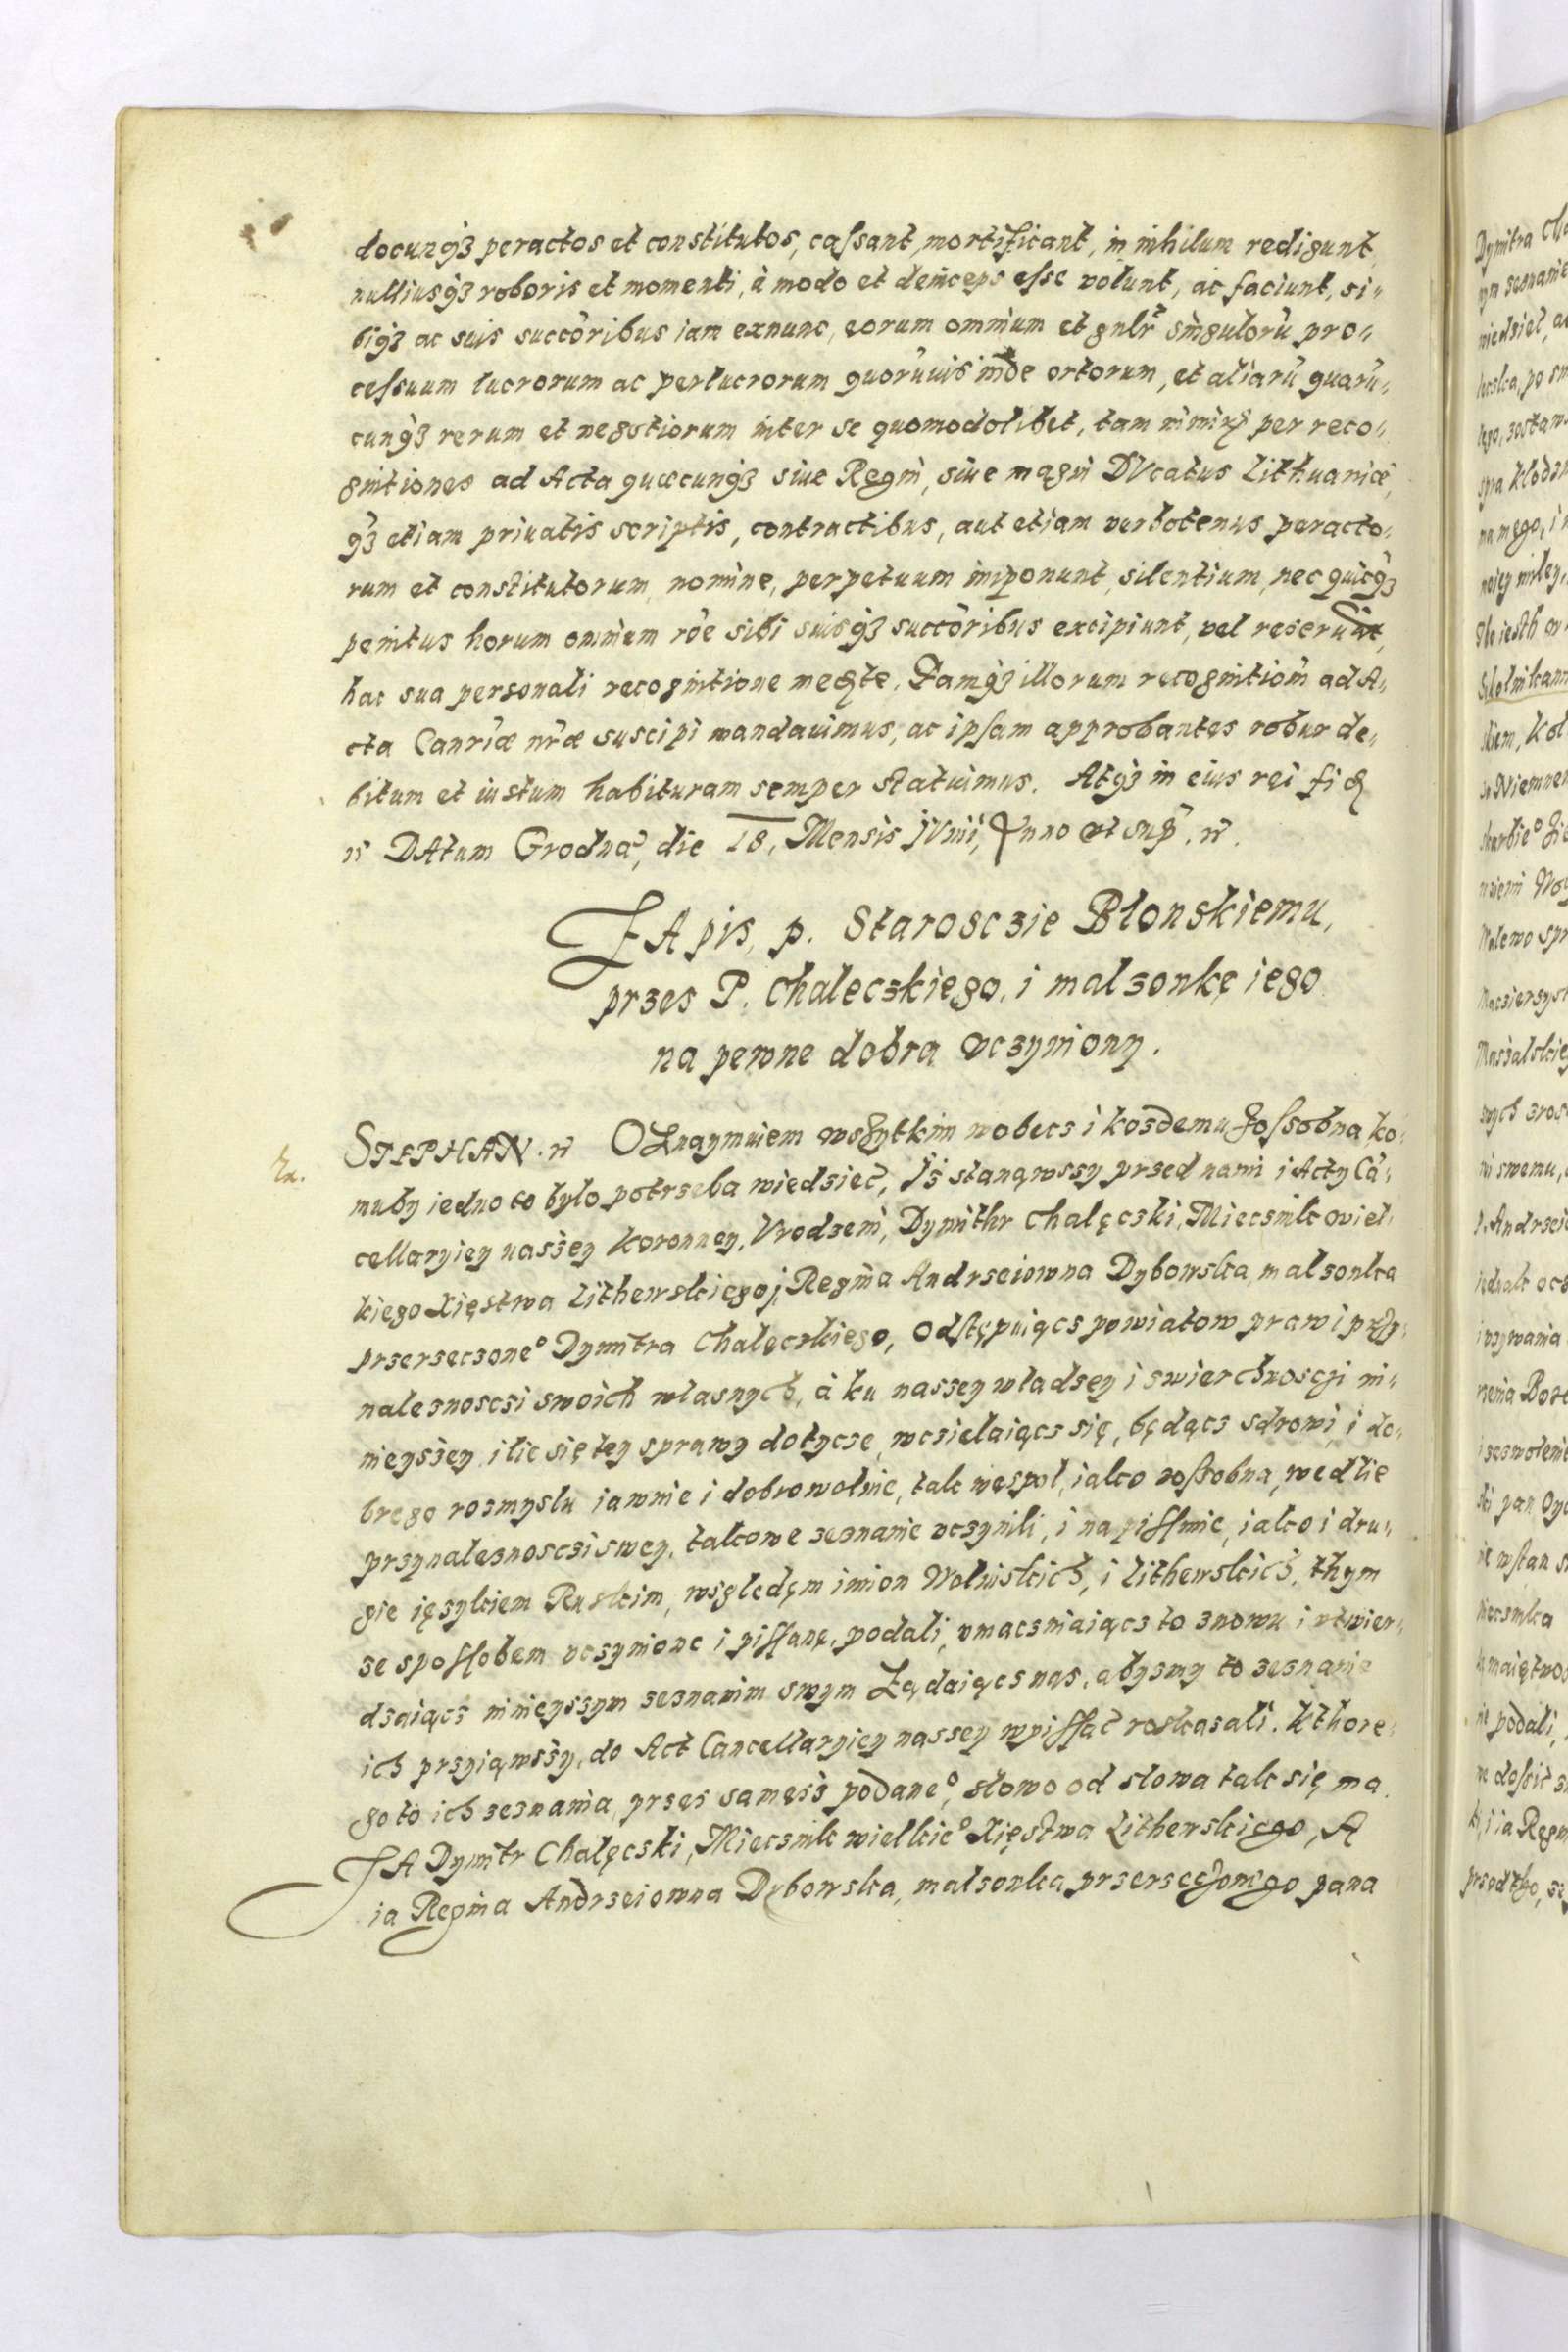 docunq₃ peractos et constitutos, caſsant, mortificant, in nihilum redigunt,
nulliusq₃ roboris et momenti, à modo et deinceps eſse volunt, ac faciunt, si-
biq₃ ac suis succōribus iam exnunc, eorum omnium et gnlr singulorū pro-
ceſsuum lucrorum ac perlucrorum quorūuis inde ortorum, et aliarū quarū-
cunq₃ rerum et negotiorum inter se quomodolibet, tam per reco-
gnitiones ad Acta quæcunq₃ siue Regni, siue magni DVcatus Lithuaniæ,
q₃ etiam priuatis scriptis, contractibus, aut etiam verbotenus peracto-
rum et constitutorum, nomine, perpetuum imponunt, silentium, nec quicq₃
penitus horum omnium rōe sibi suisq₃ succōribus excipiunt, vel reseruant,
hac sua personali recognitione medte. Eamq₃ illorum recognitionī ad A-
cta Canriæ nr̄æ suscipi mandauimus, ac ipſam approbantes robur de-
bitum et iustum habituram semper statuimus. Atq₃ in eius rei fid
rr DAtum Grodnæ, die 18. Mensis JVnii, Anno vt sup. rr.
ZApis, p. Starosczie Błonskiemu,
przes P. Chaleczkiego, i malzonkę iego
na pewne dobra vczyniony.
STEPHAN. rr OZnaymuiem wszytkim wobecz i kozdemu zoſsobna ko-
muby iedno to było potrzeba wiedzieć, Jż stanąwszy przed nami i Acty Cā-
cellaryiey naszey Koronney, Vrodzeni, Dymithr Chalęczki, Miecznik wiel-
kiego Xięstwa Lithewskiego, j Regina Andrzeiowna Dybowska, malzonka
przerzeczone° Dymitra Chalęczkiego, Odstępuiącz powiatow praw i przy-
naleznosczi swoich własnych, à ku naszey władzey i zwierchnosczi ni-
nieyszey, ilie się tey sprawy dotycze, wczielaiącz się, będącz zdrowi, i do-
brego rozmysłu iawnie i dobrowolnie, tak wespol, iako zoſsobna, wedlie
przynaleznosczi swey, takowe zeznanie vczynili, i na piſsmie, iako i dru-
gie ięzykiem Ruskim, względęm imion Wolinskich, i Lithewskich, thym
ze spoſsobem vczynione i piſsanę, podali, vmaczniaiącz to znowu i vtwier-
dzaiącz ninieyszym zeznanim swym Ządaiącz nas, abyzmy to zeznanie
ich przyiąwszy, do Act Cancellaryiey naszey wpiſsać roskazali. Kthore-
go to ich zeznania, przes samęsz podane°, słowo od słowa tak się ma.
JA Dymitr Chalęczki, Miecznik wielkie° Xięstwa Lithewskiego, A
ia Regina Andrzeiowna Dybowska, malzonka przerzeczonego pana